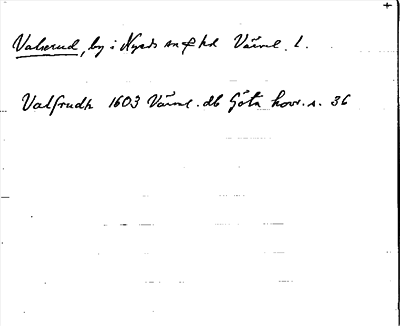 Valserud, by i Nyeds sn o hd Värml. l.
Valfrudh 1603 Värml. db Göta hovr. s. 36